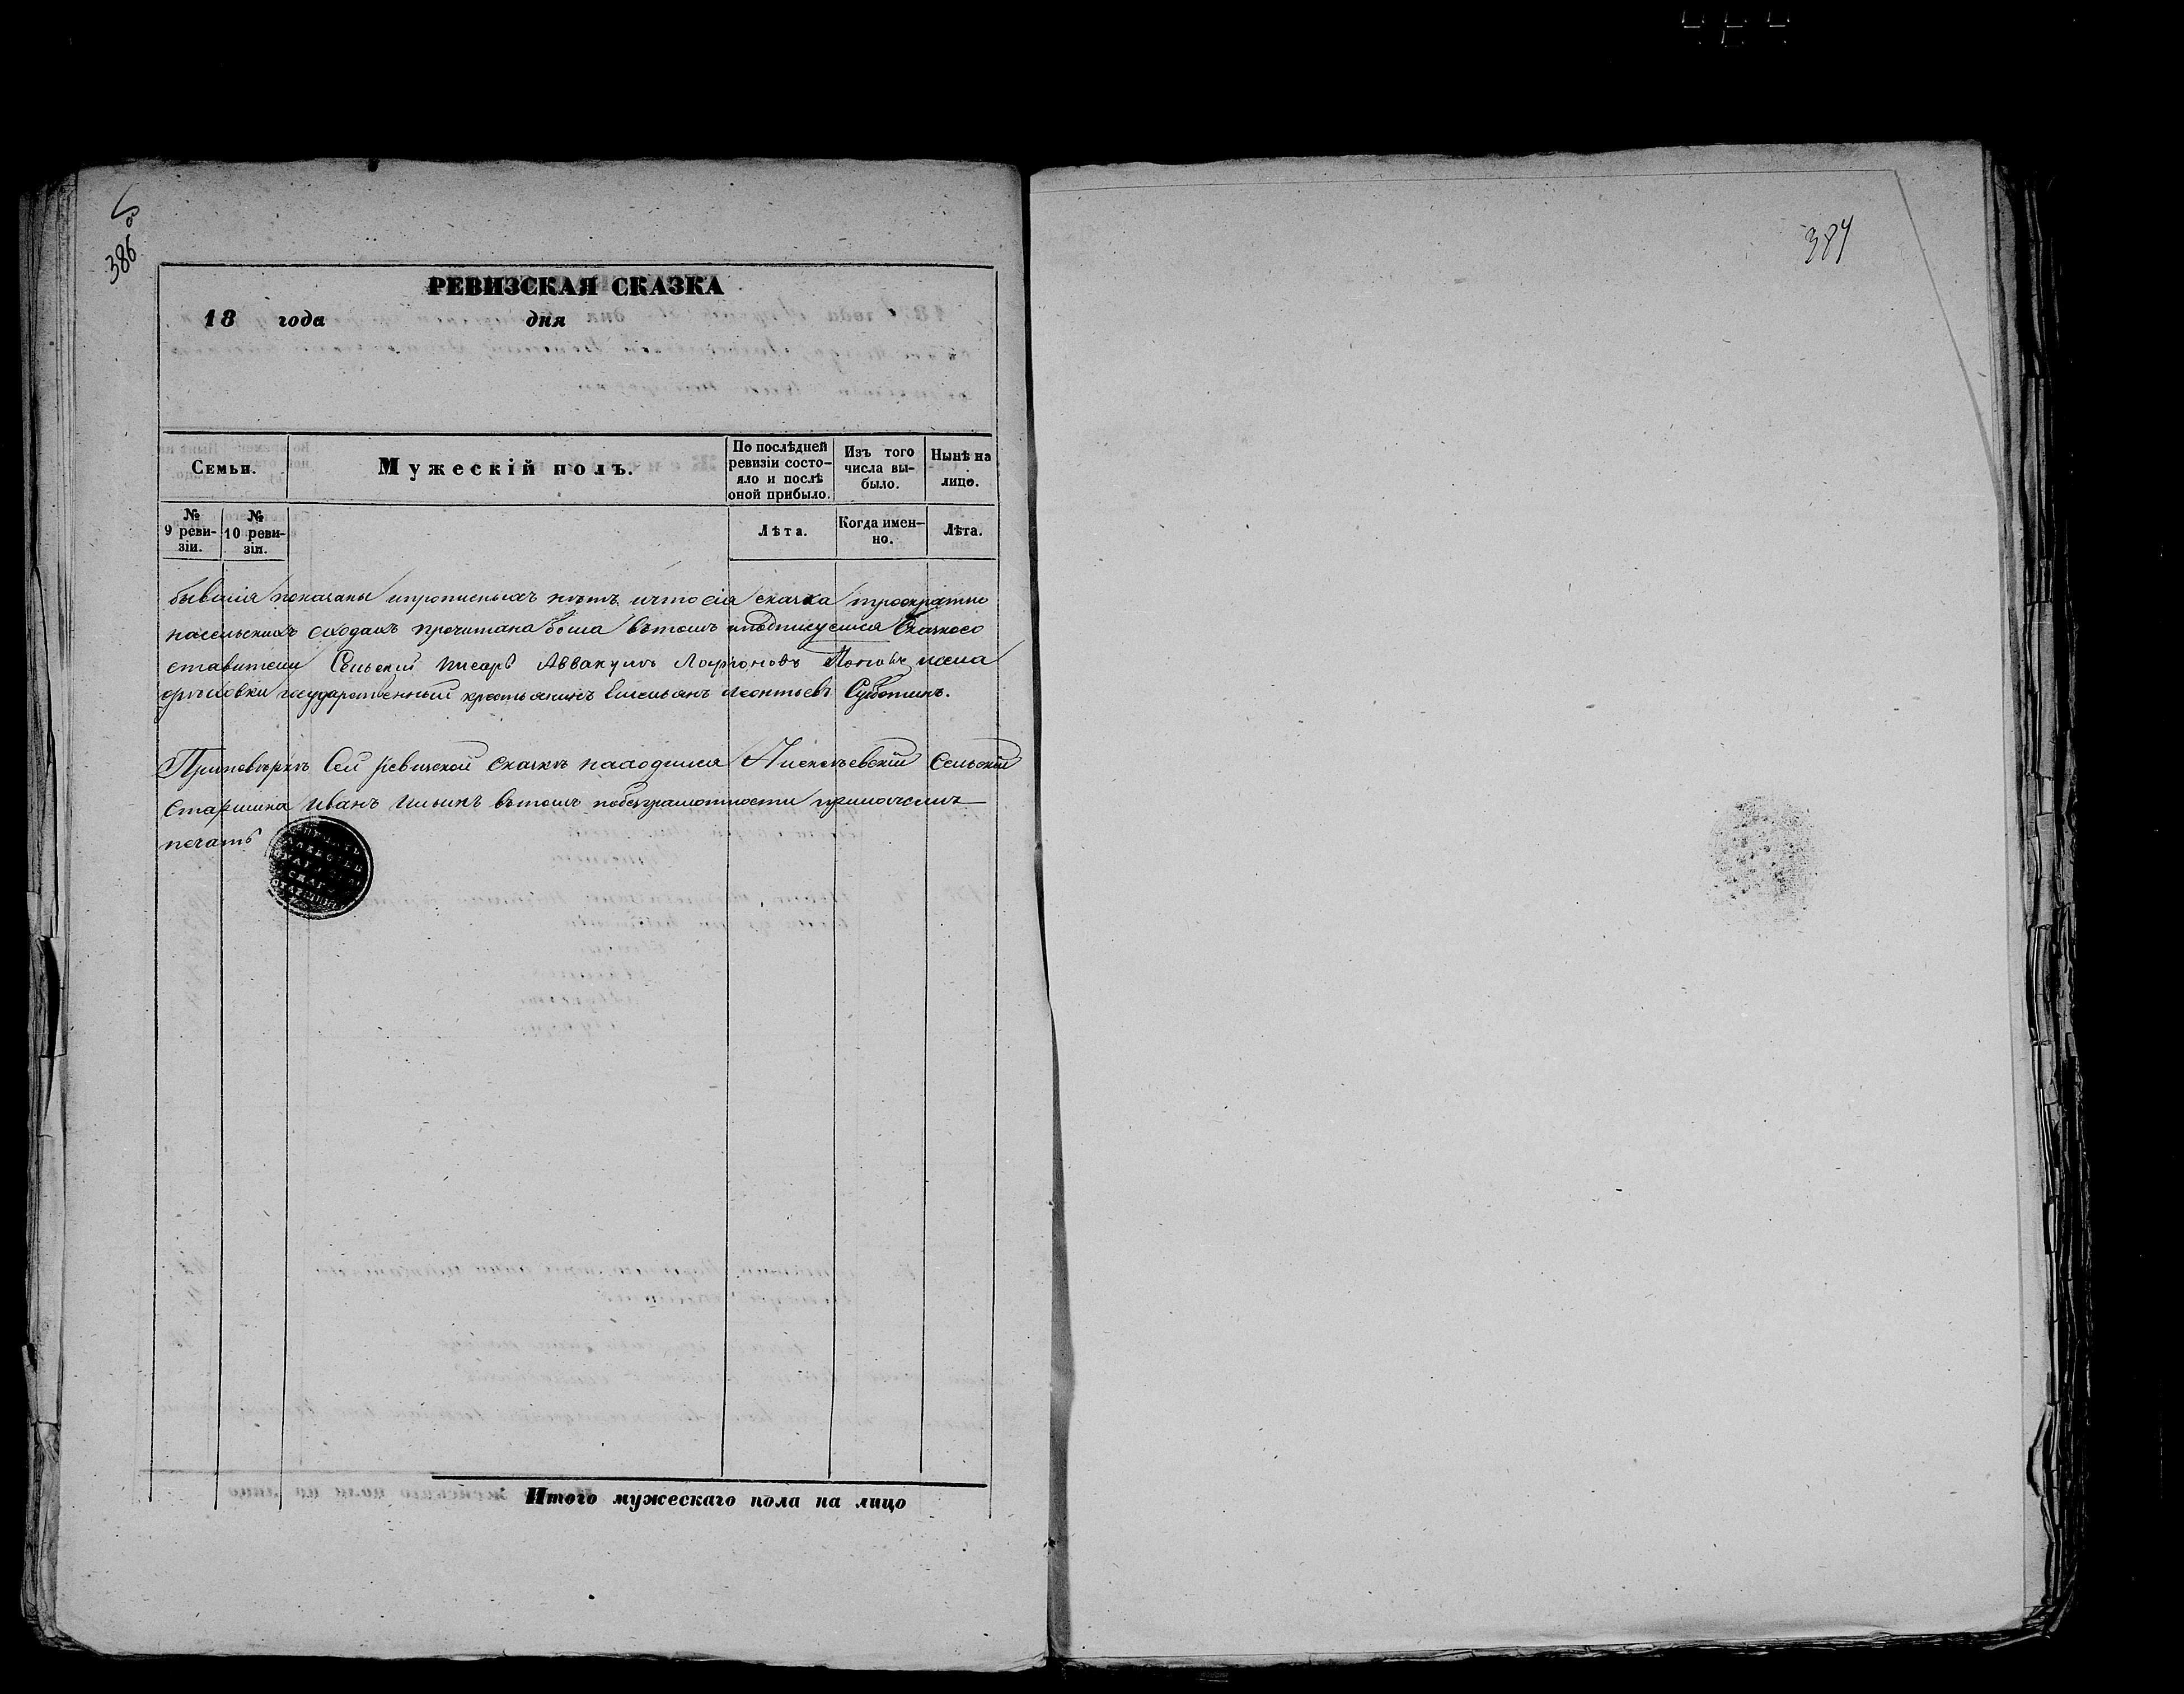 386 об
387
РЕВИЗСКАЯ СКАЗКА
18 года дня
Семьи.
Мужескій полъ.
По послѣдней ревизіи состо-
яло и послѣ оной прибыло.
Изъ того числа вы-
было.
Нынѣ на лицо.
№ 9 реви-
зіи.
№ 10 реви-
зіи.
Лѣта.
Когда имен-
но.
Лѣта.
бывшія показаны ипрописныхъ нѣтъ ичто сія сказка троекратно
насельскихъ сходахъ прочитана была вътомъ иподписуемся Сказкосо
ставители Сельский писарь Аввакумъ Ларіоновъ Поповъ
государственный крестьянинъ Емельянъ Леонтьевъ Суботинъ.
Приповѣркѣ Сей Ревизской Сказкѣ находился Сельскій
Старшина Иванъ Ильинъ вътомъ побезграмотности приложилъ
печать
Итого мужескаго пола на лицо